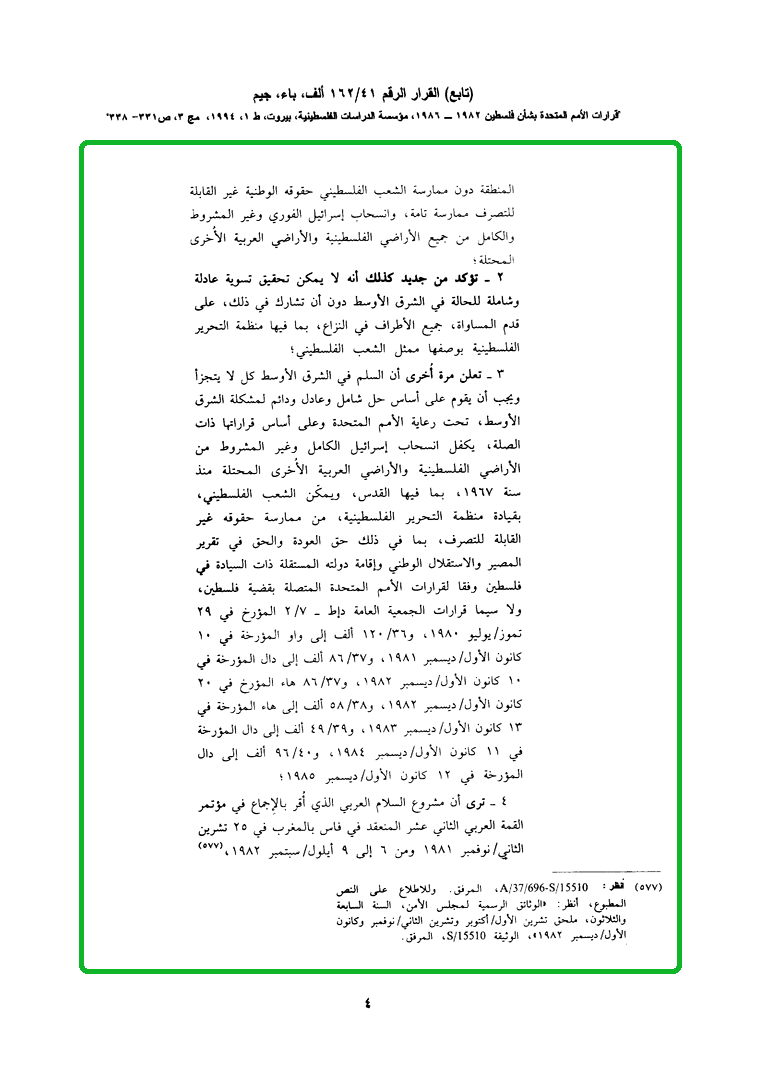 (تابع) القرار الرقم ١٦٢/٤١ ألف، باء، جيم
"قرارات الأمم المتحدة بشأن فلسطين ١٩٨٢ ــ ١٩٨٦، مؤسسة الدراسات الفلسطينية، بيروت، ط ١، ١٩٩٤، مج ٣، ص٣٣١- ٣٣٨"
المنطقة دون ممارسة الشعب الفلسطيني حقوقه الوطنية غير القابلة
للتصرف ممارسة تامة، وانسحاب إسرائيل الفوري وغير المشروط
والكامل من جميع الأراضي الفلسطينية والأراضي العربية الأُخرى
المحتلة؛
٢ ــ تؤكد من جديد كذلك أنه لا يمكن تحقيق تسوية عادلة
وشاملة للحالة في الشرق الأوسط دون أن تشارك في ذلك، على
قدم المساواة، جميع الأطراف في النزاع، بما فيها منظمة التحرير
الفلسطينية بوصفها ممثل الشعب الفلسطيني؛
٣ ــ تعلن مرة أُخرى أن السلم في الشرق الأوسط كل لا يتجزأ
ويجب أن يقوم على أساس حل شامل وعادل ودائم لمشكلة الشرق
الأوسط، تحت رعاية الأمم المتحدة وعلى أساس قراراتها ذات
الصلة، يكفل انسحاب إسرائيل الكامل وغير المشروط من
الأراضي الفلسطينية والأراضي العربية الأُخرى المحتلة منذ
سنة ١٩٦٧، بما فيها القدس، ويمكّن الشعب الفلسطيني،
بقيادة منظمة التحرير الفلسطينية، من ممارسة حقوقه غير
القابلة للتصرف، بما في ذلك حق العودة والحق في تقرير
المصير والاستقلال الوطني وإقامة دولته المستقلة ذات السيادة في
فلسطين وفقا لقرارات الأمم المتحدة المتصلة بقضية فلسطين،
ولا سيما قرارات الجمعية العامة دإط ــ ٢/٧ المؤرخ في ٢٩
تموز/يوليو ١٩٨٠، و١٢٠/٣٦ ألف إلى واو المؤرخة في ١٠
كانون الأول/ديسمبر ١٩٨١، و٨٦/٣٧ ألف إلى دال المؤرخة في
١٠ كانون الأول/ديسمبر ١٩٨٢، و٨٦/٣٧ هاء المؤرخ في ٢٠
كانون الأول/ديسمبر ١٩٨٢، و٥٨/٣٨ ألف إلى هاء المؤرخة في
١٣ كانون الأول/ديسمبر ١٩٨٣، و٤٩/٣٩ ألف إلى دال المؤرخة
في ١١ كانون الأول/ديسمبر ١٩٨٤، و٩٦/٤٠ ألف إلى دال
المؤرخة في ١٢ كانون الأول/ديسمبر ١٩٨٥؛
٤ ــ ترى أن مشروع السلام العربي الذي أُقر بالإجماع في مؤتمر
القمة العربي الثاني عشر المنعقد في فاس بالمغرب في ٢٥ تشرين
الثاني/نوفمبر ١٩٨١ ومن ٦ إلى ٩ أيلول/سبتمبر ١٩٨٢،(٥٧٧)
(٥٧٧) أنظر: A/37/696-S/15510، المرفق. وللاطلاع على النص
المطبوع، أنظر: «الوثائق الرسمية لمجلس الأمن، السنة السابعة
والثلاثون، ملحق تشرين الأول/أكتوبر وتشرين الثاني/نوفمبر وكانون
الأول/ديسمبر ١٩٨٢»، الوثيقة S/15510، المرفق.
٤